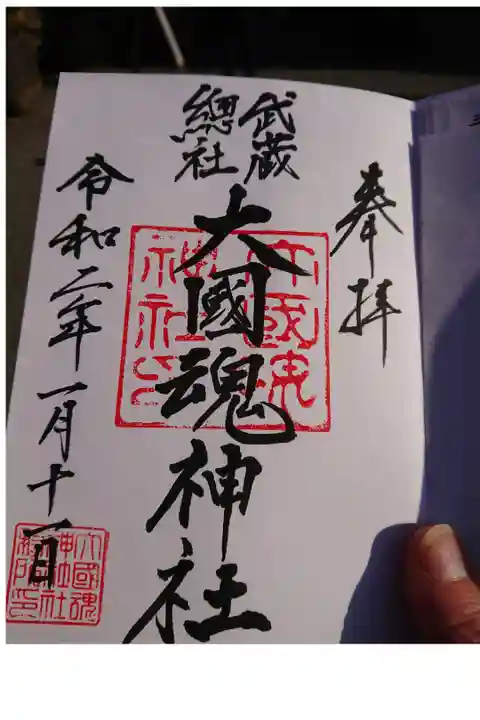 奉拝
武蔵
總社
大國魂神社
大國魂
神社印
令和二年一月十一日
大國魂
神社